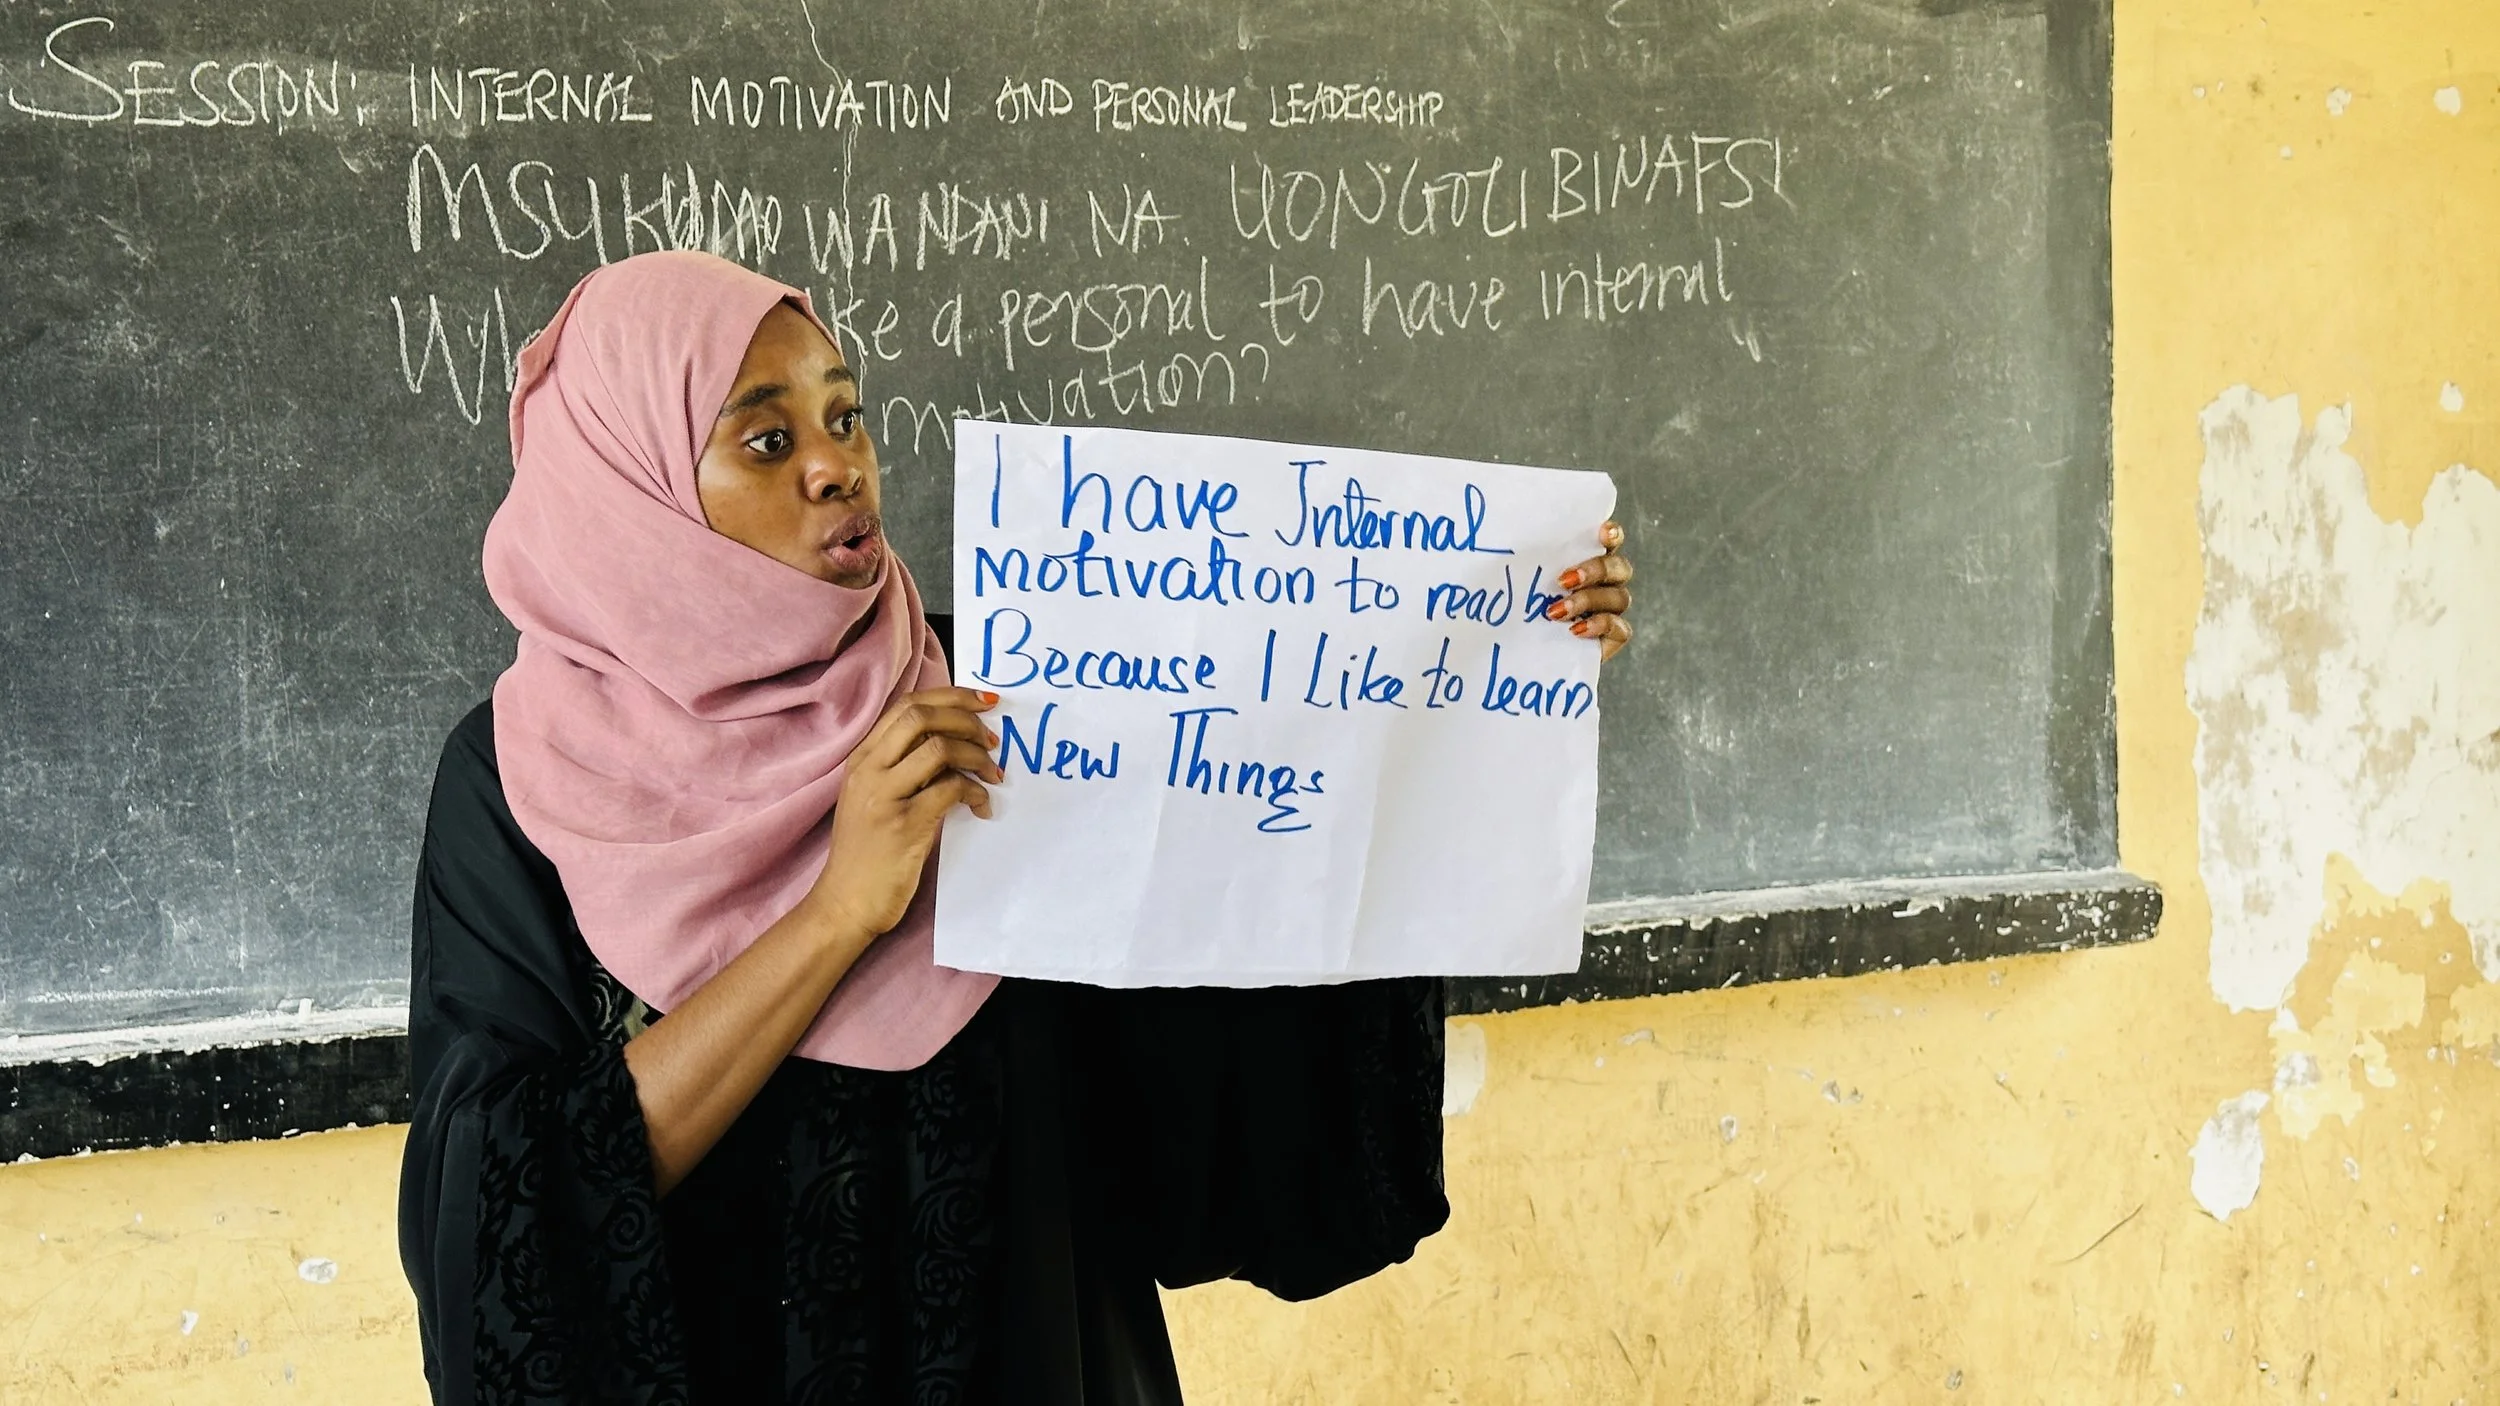 SESSION: INTERNAL MOTIVATION AND PERSONAL LEADERSHIP
MSUKUMO WA NDANI NA UONGOZI BINAFSI
a personal to have internal
motivation?
I have Internal
motivation to read
Because I Like to learn
New Things